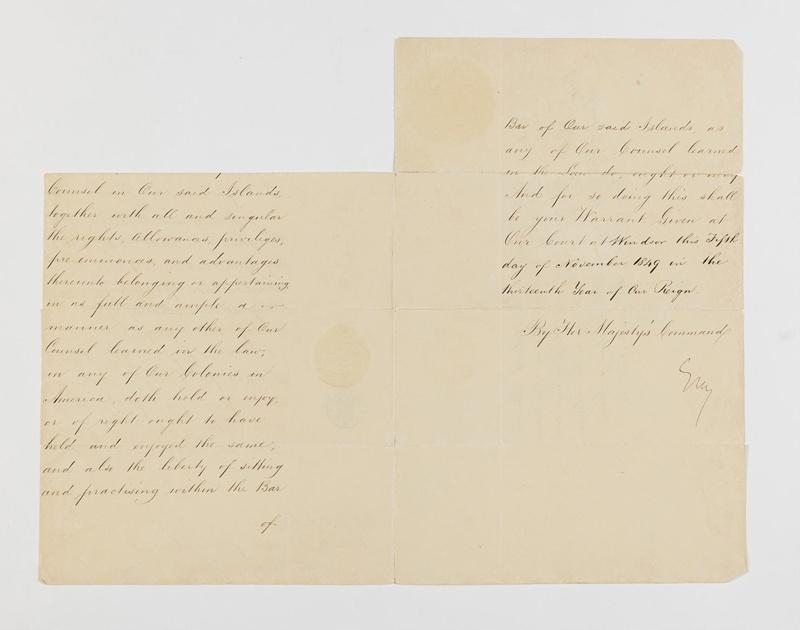 Counsel in Our said Islands,
together with all and singular
the rights, Allowances, privileges,
pre-eminences, and advantages
thereunto belonging or appertaining
in as full and ample a
manner as any other of Our
Counsel learned in the Law,
in any of Our Colonies in
America, doth hold or enjoy,
or of right ought to have
held and enjoyed the same,
and also the liberty of sitting
and practising within the Bar
of
Bar of Our said Islands, as
any of Our Counsel learned
in the Law do, ought or may
And for so doing this shall
be your Warrant Given at
Our Court at Windsor this Fifth
day of November 1849 in the
thirteenth Year of Our Reign.
By Her Majesty's Command,
Grey